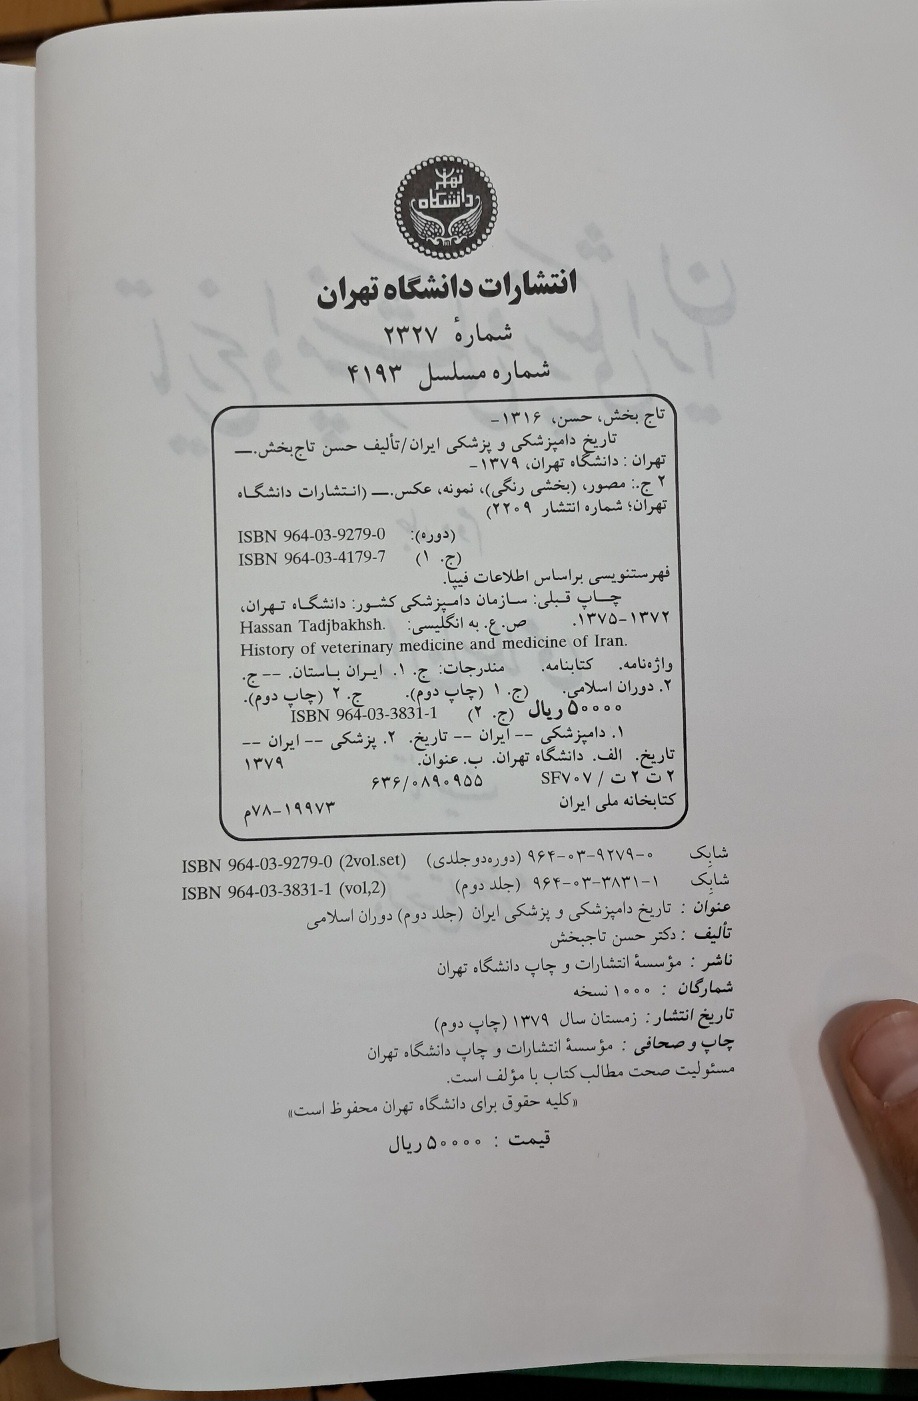 تهران
دانشگاه
انتشارات دانشگاه تهران
شمارهٔ ۲۳۲۷
شماره مسلسل ۴۱۹۳
تاج بخش، حسن، ۱۳۱۶-
تاریخ دامپزشکی و پزشکی ایران/تألیف حسن تاج‌بخش.—
تهران : دانشگاه تهران، ۱۳۷۹-
۲ ج.: مصور، (بخشی رنگی)، نمونه، عکس.— (انتشارات دانشگاه
تهران؛ شماره انتشار ۲۲۰۹)
ISBN 964-03-9279-0 (دوره):
ISBN 964-03-4179-7 (ج. ۱)
فهرستنویسی براساس اطلاعات فیپا.
چاپ قبلی: سازمان دامپزشکی کشور: دانشگاه تهران،
۱۳۷۲-۱۳۷۵. ص.ع. به انگلیسی: Hassan Tadjbakhsh.
History of veterinary medicine and medicine of Iran.
واژه‌نامه. کتابنامه. مندرجات: ج. ۱. ایران باستان. -- ج.
۲. دوران اسلامی. (ج. ۱ (چاپ دوم). ج. ۲ (چاپ دوم).
۵۰۰۰۰ ریال (ج. ۲) ISBN 964-03-3831-1
۱. دامپزشکی -- ایران -- تاریخ. ۲. پزشکی -- ایران --
تاریخ. الف. دانشگاه تهران. ب. عنوان. ۱۳۷۹
۲ ت ۲ ت / SF۷۰۷ ۶۳۶/۰۸۹۰۹۵۵
کتابخانه ملی ایران ۷۸-۱۹۹۷۳م
شابک ۰-۹۲۷۹-۰۳-۹۶۴ (دوره‌دوجلدی) ISBN 964-03-9279-0 (2vol.set)
شابک ۱-۳۸۳۱-۰۳-۹۶۴ (جلد دوم) ISBN 964-03-3831-1 (vol,2)
عنوان : تاریخ دامپزشکی و پزشکی ایران (جلد دوم) دوران اسلامی
تألیف : دکتر حسن تاجبخش
ناشر : مؤسسهٔ انتشارات و چاپ دانشگاه تهران
شمارگان : ۱۰۰۰ نسخه
تاریخ انتشار : زمستان سال ۱۳۷۹ (چاپ دوم)
چاپ و صحافی : مؤسسهٔ انتشارات و چاپ دانشگاه تهران
مسئولیت صحت مطالب کتاب با مؤلف است.
«کلیه حقوق برای دانشگاه تهران محفوظ است»
قیمت : ۵۰۰۰۰ ریال